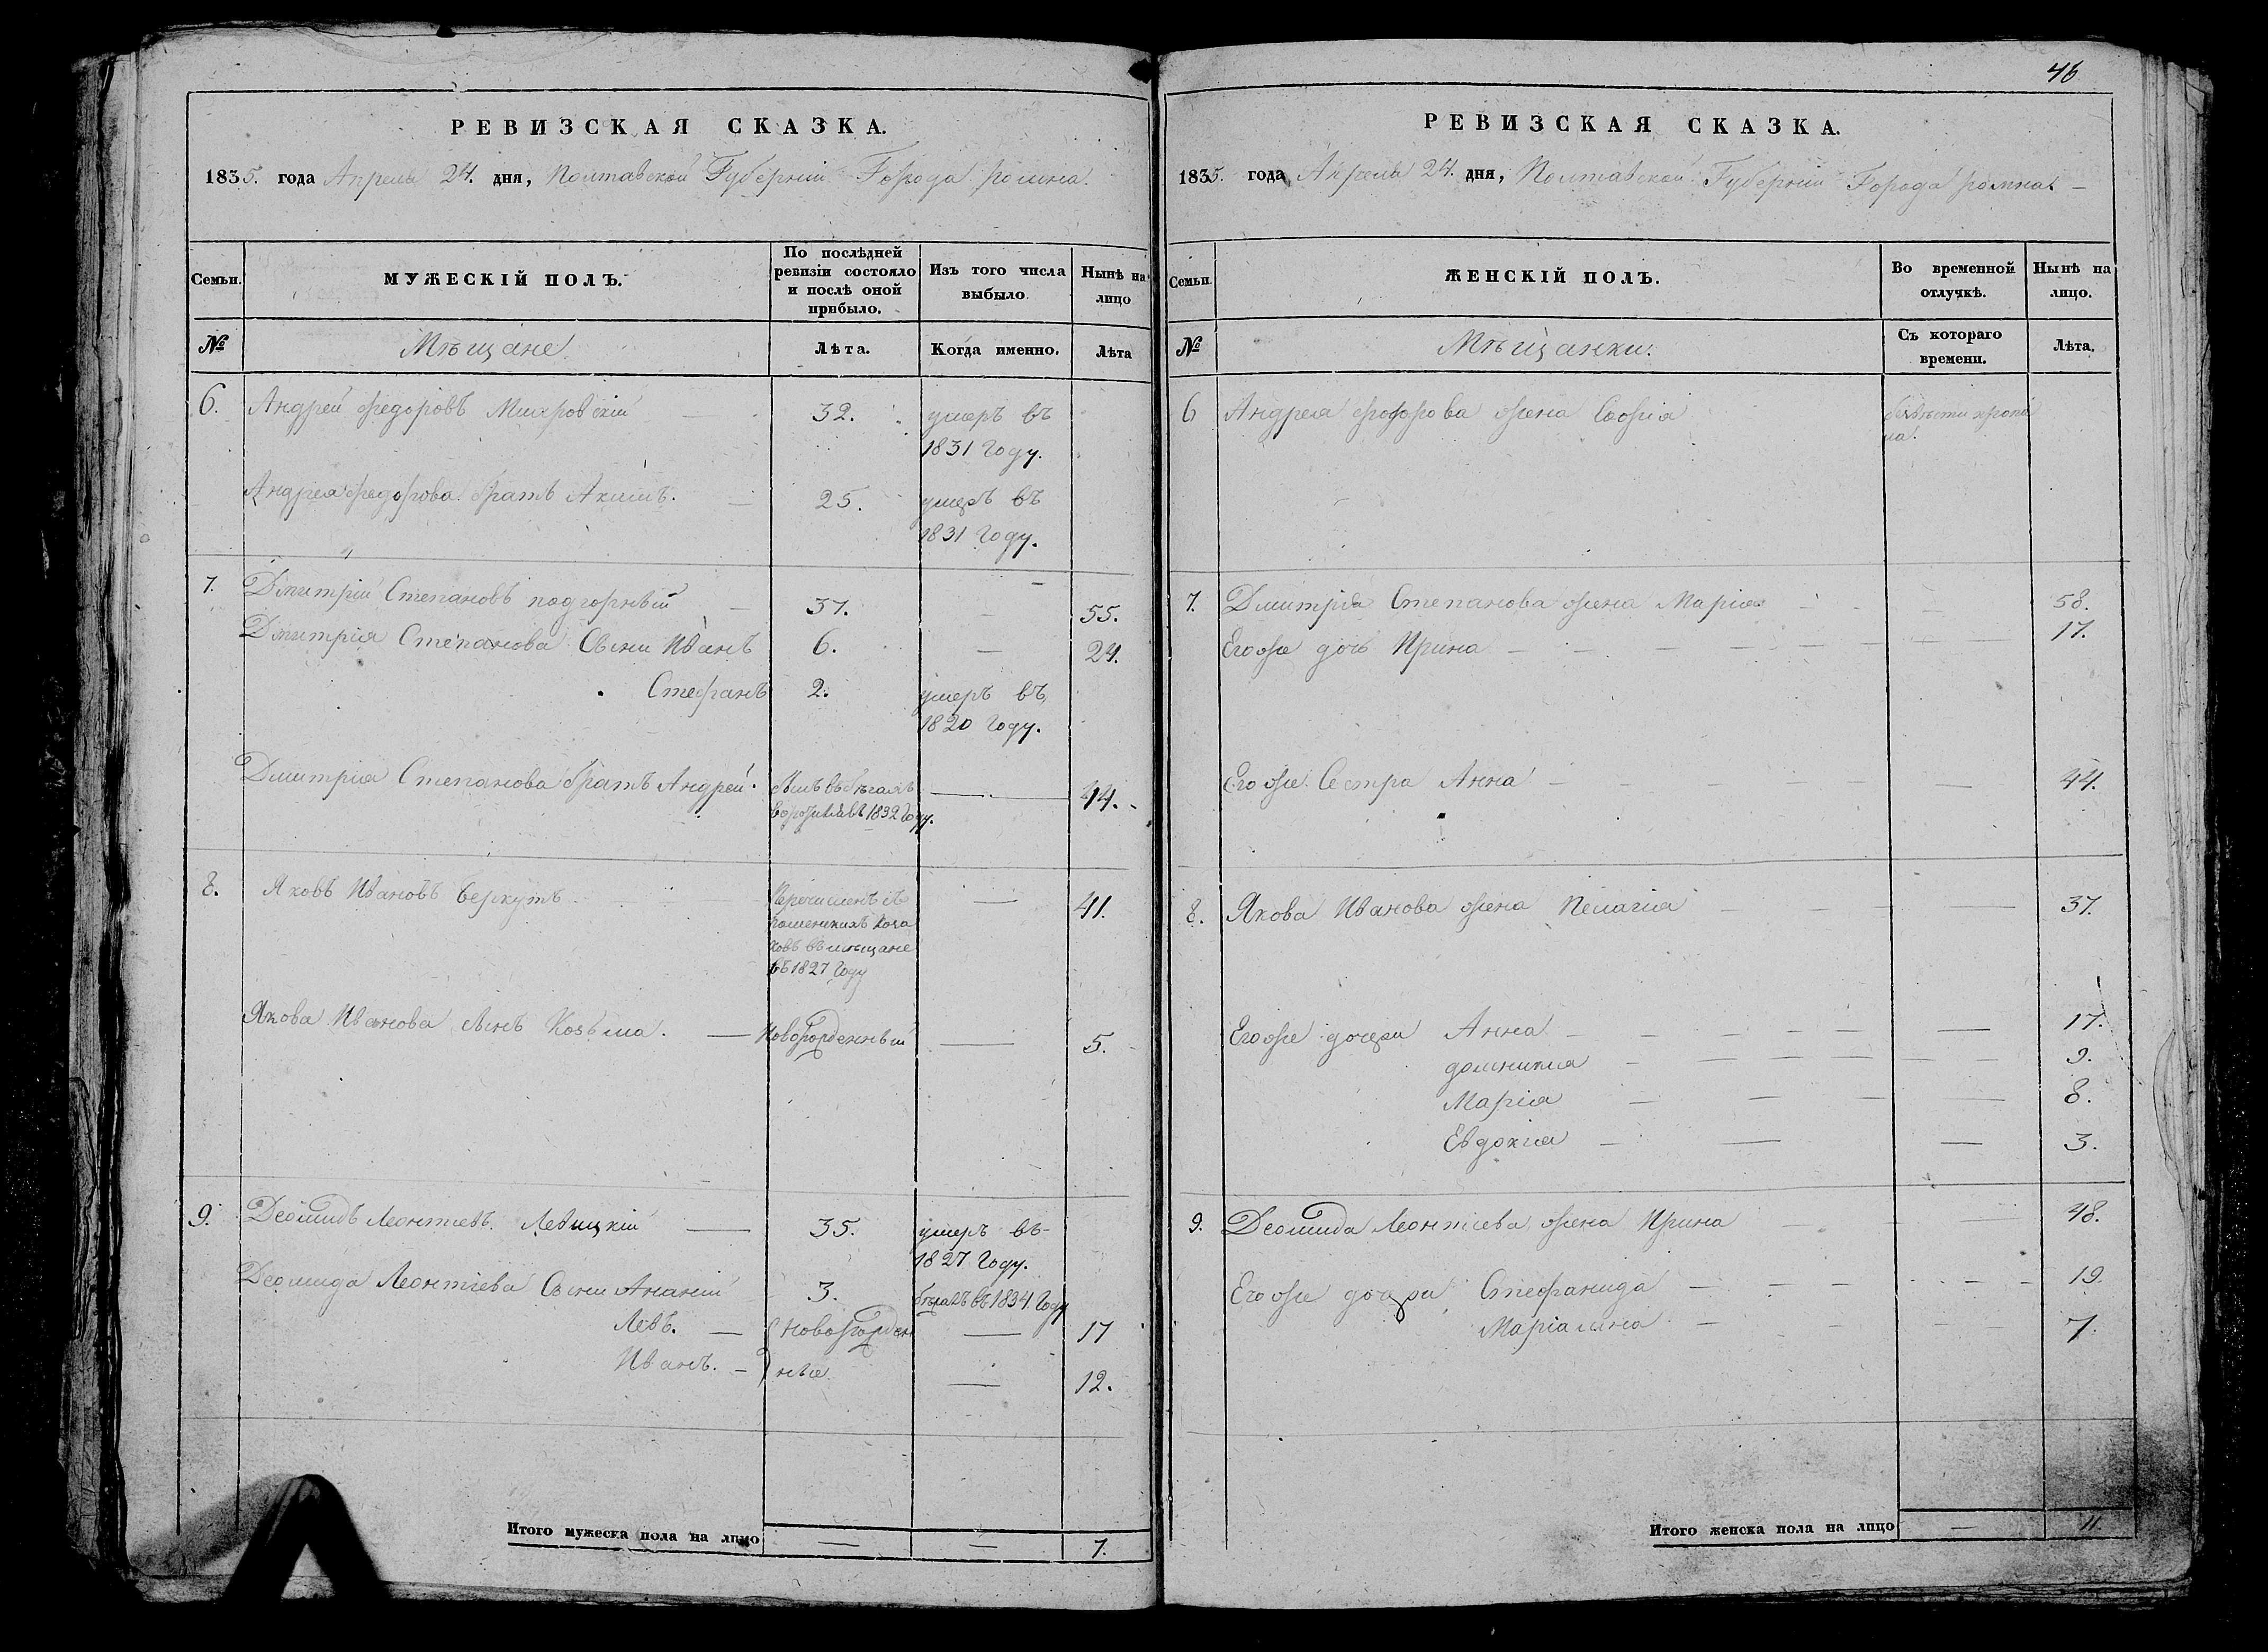 РЕВИЗСКАЯ СКАЗКА.
1835. года Апреля 24. дня, Полтавской Губерніи Города ромна.
Семьи.
МУЖЕСКІЙ ПОЛЪ.
По послѣдней ревизіи состояло и послѣ оной прибыло.
Изъ того числа выбыло
Нынѣ на лицо
№
Мѣщане
Лѣта.
Когда именно.
Лѣта
6. Андрей Федоровъ 32. умеръ въ
1831 Году.
Андрея Федорова братъ Акимъ. 25. умеръ въ
1831 Году.
7. Дмитрій Степановъ подгорный 37. — 55.
Дмитрія Степанова Сыни Иванъ 6. — 24.
Стефанъ 2. умеръ въ
1820 Году.
Дмитрія Степанова братъ Андрей. былъ въ бѣгахъ — 44.
въ 1832 Году.
8. Яковъ Ивановъ беркутъ Перечисленъ — 41.
роменскихъ коза
ковъ въ мѣщане
въ 1827 Году
Якова Иванова сынъ Козьма. — Новорожденный — 5.
9. Деомидъ Леонтіевъ Левицкій — 35. умеръ въ
1827 Году.
Деомида Леонтіева Сыни Ананій 3. въ 1834 Году
Левъ. — новорожден — 17
Иванъ. — ные — 12.
Итого мужеска пола на лицо — — 7.
46
РЕВИЗСКАЯ СКАЗКА.
1835. года Апреля 24. дня, Полтавской Губерніи Города ромна. —
Семьи
ЖЕНСКІЙ ПОЛЪ.
Во временной отлучкѣ.
Нынѣ на лицо.
№
Мѣщанки.
Съ котораго времени.
Лѣта.
6 Андрея Федорова жена Софія
7. Дмитрія Степанова жена Марія — 58.
Его же дочь Ирина — 17.
Его же Сестра Анна — 44.
8. Якова Иванова жена Пелагія — 37.
Его же дочери Анна — 17.
домникія — 9.
Марія — 8.
Евдокія — 3.
9. Деомида Леонтіева жена Ирина — 48.
Его же дочери Стефанида — 19.
— 7.
Итого женска пола на лицо — 11.